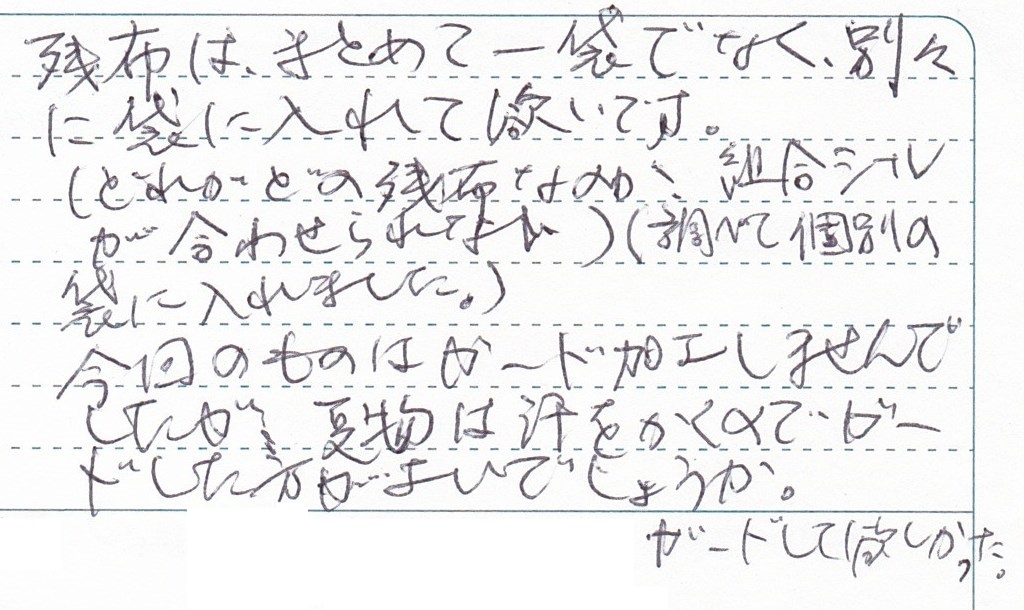 残布は、まとめて一袋でなく、別々
に袋に入れて欲いです。
(どれがどの残布なのか、組合シール
が合わせられない)(調べて個別の
袋に入れました。)
今回のものはガード加工しませんで
したが、夏物は汗をかくのでガー
ドした方がよいでしょうか。
ガードして欲しかった。